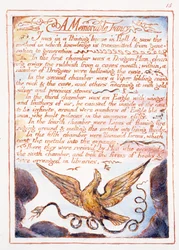 15
A Memorable Fancy
I was in a Printing house in Hell & saw the
method in which knowledge is transmitted from gene-
ration to generation.
In the first chamber was a Dragon-Man, clear-
ing away the rubbish from a caves mouth; within, a
number of Dragons were hollowing the cave,
In the second chamber was a Viper folding round
the rock & the cave, and others adorning it with gold
silver and precious stones.
In the third chamber was an Eagle with wings
and feathers of air, he caused the inside of the cave
to be infinite, around were numbers of Eagle like
men, who built palaces in the immense cliffs.
In the fourth chamber were Lions of flaming fire
raging around & melting the metals into living fluids.
In the fifth chamber were Unnam'd forms, which
cast the metals into the expanse.
There they were reciev'd by Men who occupied
the sixth chamber, and took the forms of books &
were arranged in libraries.